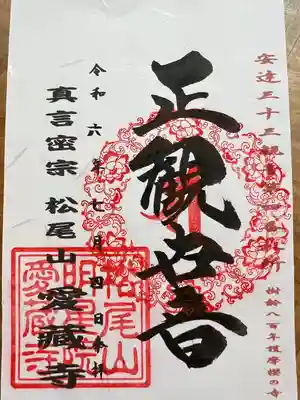 安達三十三観音第四番札所
樹齢八百年護摩桜の寺
正観世音
令和六年七月四日奉拝
真言密宗 松尾山 愛蔵寺
松尾山
明星院
愛蔵寺